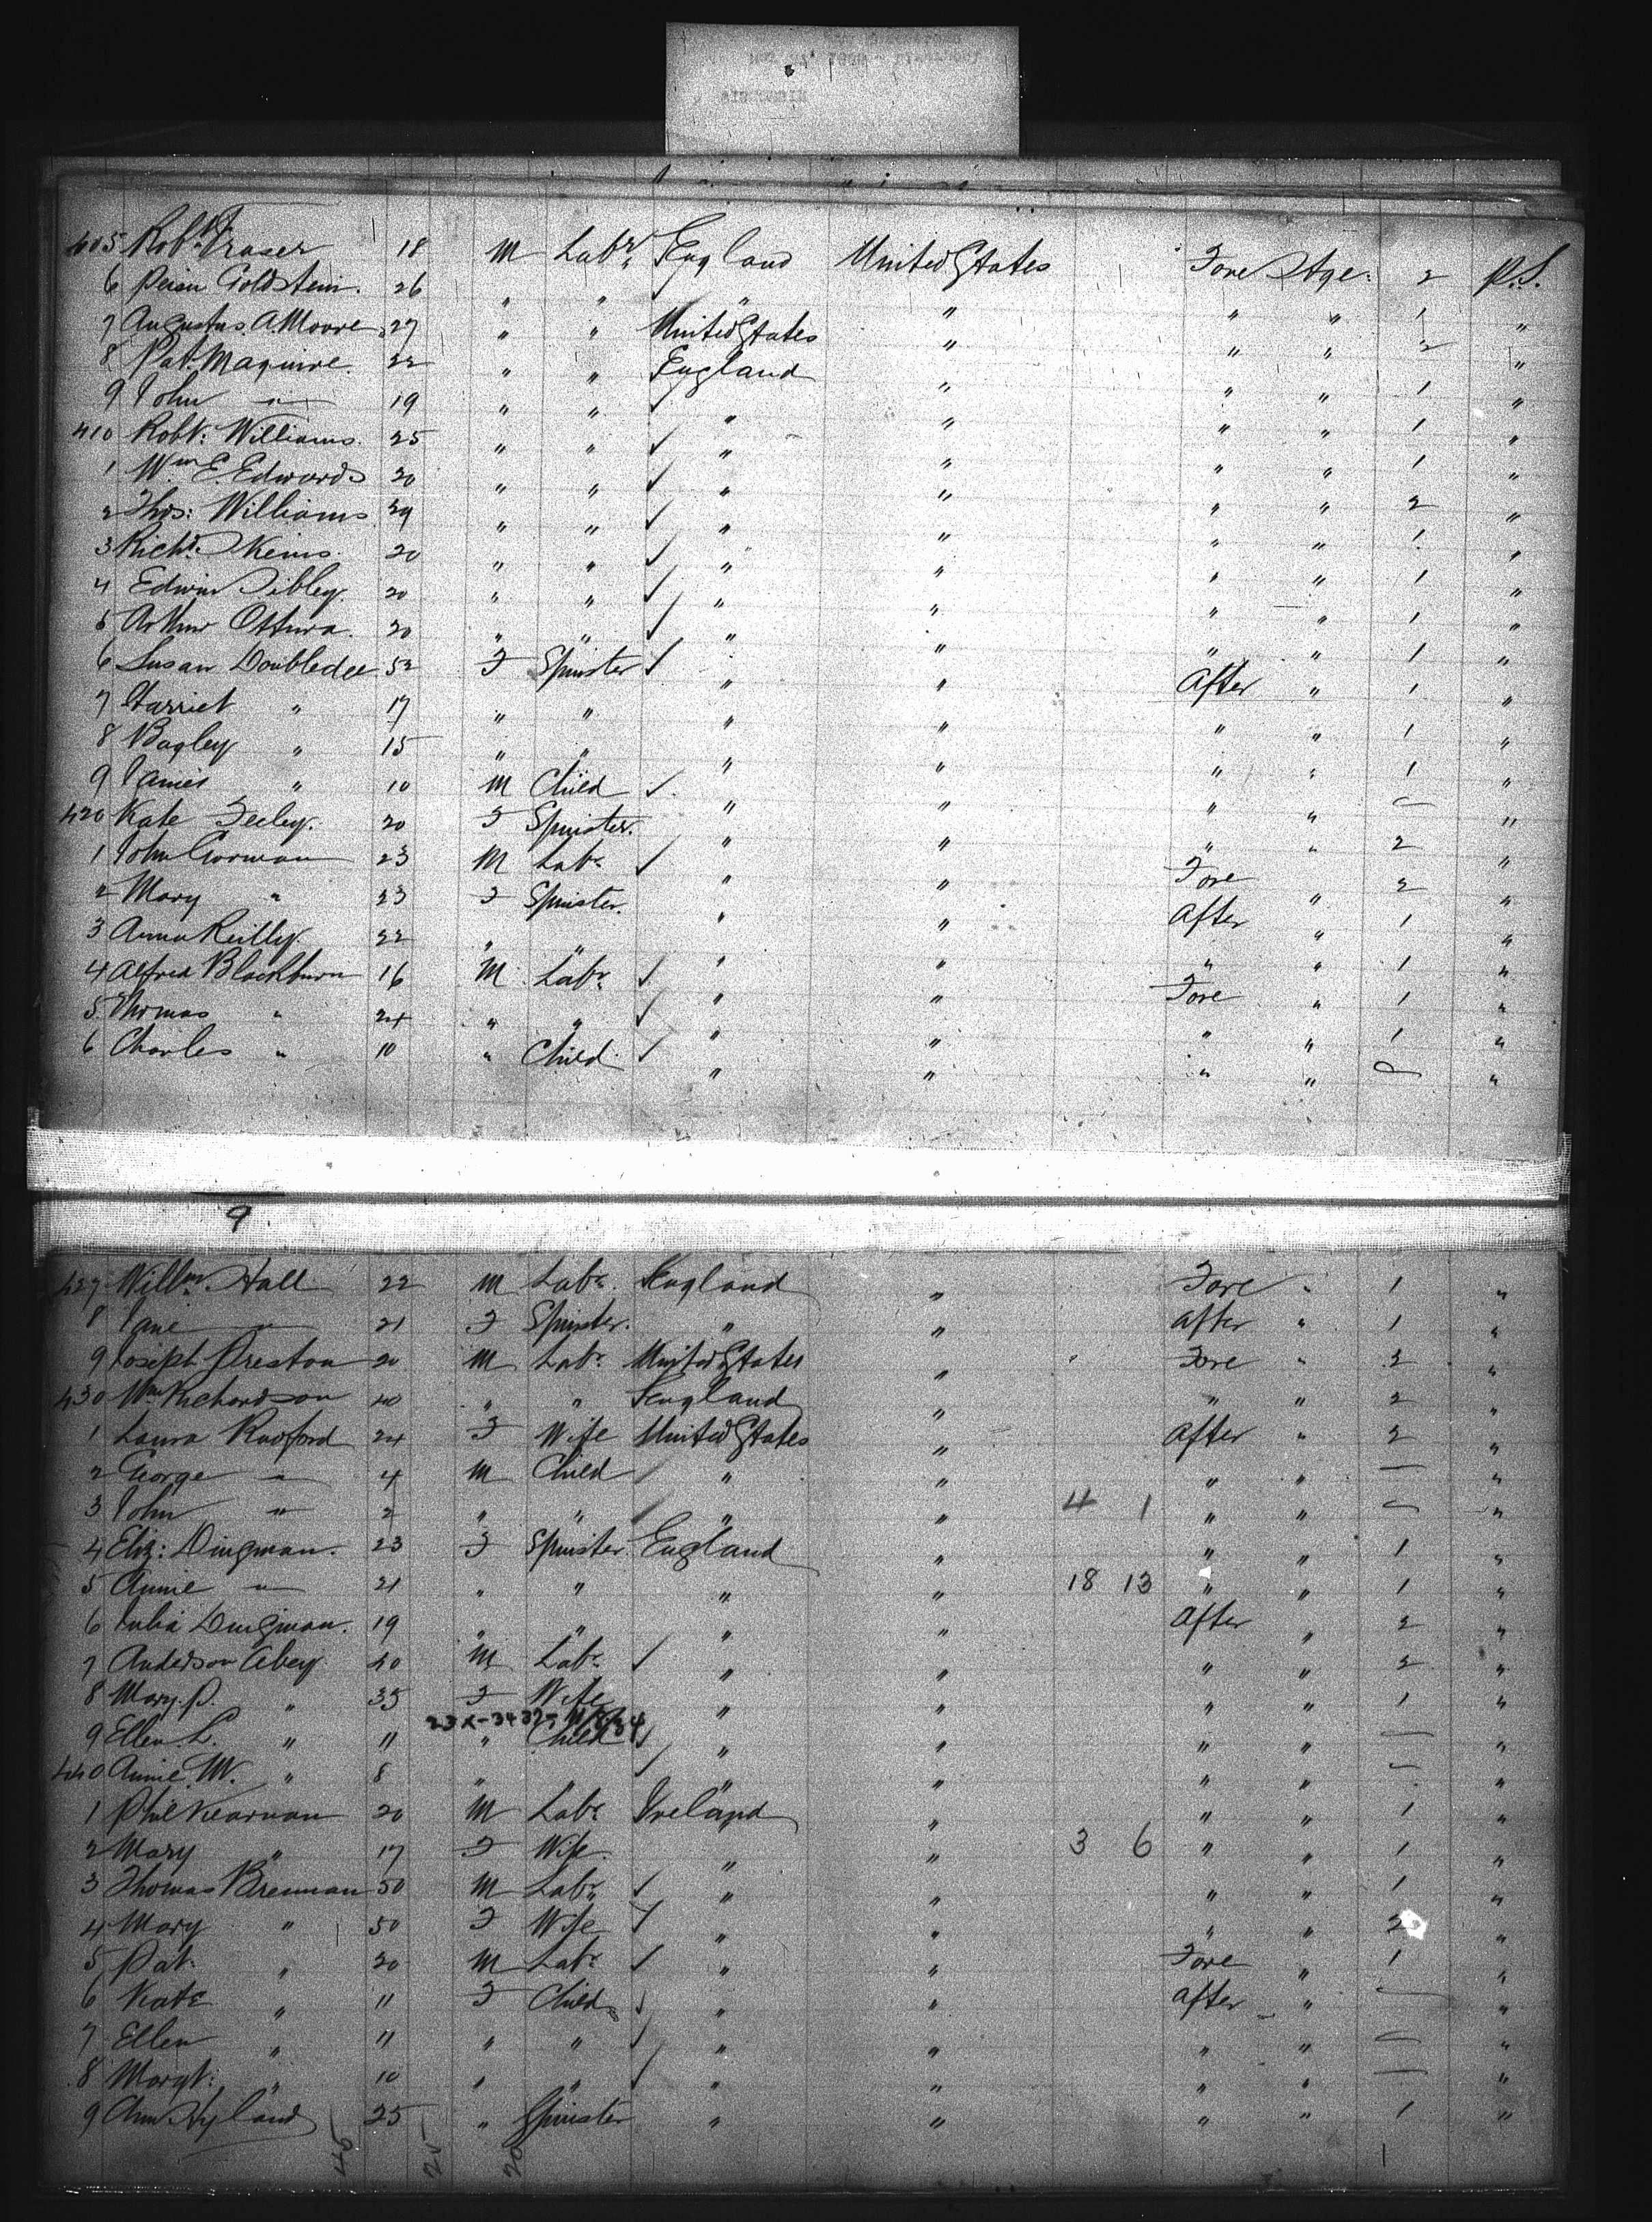 405 Robt Fraser 18 M Labr England United States Fore Stge: 2 P.S.
6 Goldstein. 26 " " " " " " 1 "
7 Augustus A Moore 27 " " United States " " " 2 "
8 Pat. Maguire. 22 " " England " " " 1 "
9 John " 19 " " " " " " 1 "
410 Robt: Williams. 25 " " " " " " 1 "
1 Wm E. Edwards 20 " " " " " " 2 "
2 Thos: Williams 29 " " " " " " 1 "
3 Richd 20 " " " " " " 1 "
4 Edwin Sibley. 20 " " " " " " 1 "
5 Arthur 20 " " " " " " 1 "
6 Susan Doubledee 52 F Spinster " " After " 1 "
7 Harriet " 17 " " " " " " 1 "
8 Bagley " 15 " " " " " " 1 "
9 James " 10 M Child " " " " — "
420 Kate Feeley. 20 F Spinster. " " " " 2 "
1 John Gorman 23 M Labr " " Fore " 2 "
2 Mary " 23 F Spinster. " " After " 1 "
3 Anna Reilly. 22 " " " " " " 1 "
4 Alfred Blackburn 16 M Labr " " Fore " 1 "
5 Thomas " 24 " " " " " " 1 "
6 Charles " 10 " Child " " " " — "
9
427 Willm Hall 22 M Labr. England " Fore " 1 "
8 Jane " 21 F Spinster. " " After " 1 "
9 Joseph Preston 20 M Labr United States " Fore " 2 "
430 Wm Richardson 40 " " England " " " 2 "
1 Laura Radford 24 F Wife United States " After " 2 "
2 George " 4 M Child " " " " — "
3 John " 2 " " " " 4 1 " " — "
4 Eliz: Dingman. 23 F Spinster. England " " " 1 "
5 Annie " 21 " " " " 18 13 " " 1 "
6 Julia Dingman. 19 " " " " After " 2 "
7 Anderson Abey. 40 M Labr " " " " 2 "
8 Mary. P. " 35 F Wife " " " " 1 "
9 Ellen. L. " 11 " Child " " " " — "
440 Annie. M. " 8 " " " " " — "
1 Phil Kearnan 20 M Labr Ireland " " " 1 "
2 Mary " 17 F Wife. " " 3 6 " " 1 "
3 Thomas Brennan 50 M Labr " " " " 1 "
4 Mary " 50 F Wife " " " " 2 "
5 Pat. " 20 M Labr " " Fore " 1 "
6 Kate " 11 F Child " " After " — "
7 Ellen " 11 " " " " " " — "
8 Margt: " 10 " " " " " " — "
9 Ann Hyland 25 " Spinster " " " " 1 "